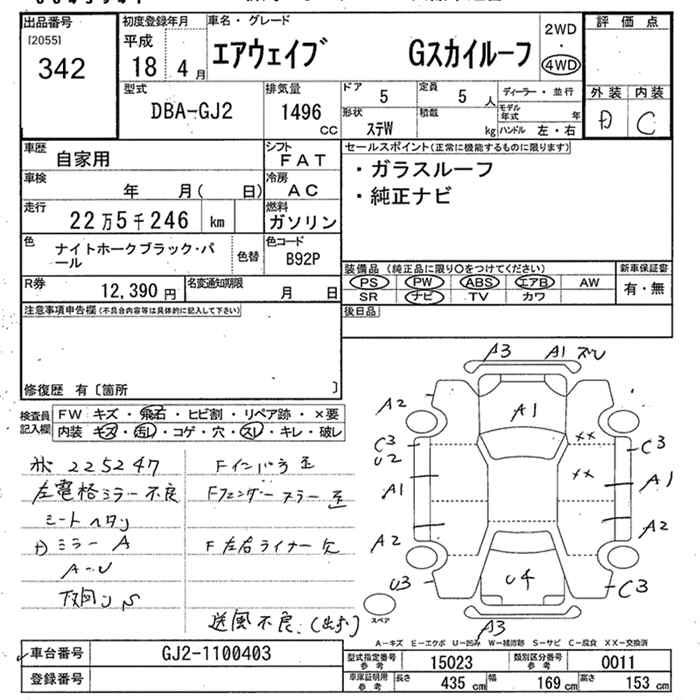 出品番号
[2055]
342
初度登録年月
平成
18 4 月
車名・グレード
エアウェイブ Gスカイルーフ
2WD
・
4WD
評価点
外装 内装
D C
型式
DBA-GJ2
排気量
1496
CC
ドア
5
定員
5 人
形状
ステW
積載
kg
ディーラー・並行
モデル
年式 年
ハンドル 左・右
車歴
自家用
シフト
FAT
車検
年 月( 日)
冷房
AC
走行
22万5千246 km
燃料
ガソリン
色
ナイトホークブラック・パ
ール
色替
色コード
B92P
R券
12,390 円
名変通知期限
月 日
セールスポイント(正常に機能するものに限ります)
・ガラスルーフ
・純正ナビ
装備品 (純正品に限り○をつけてください)
PS PW ABS エアB AW
SR ナビ TV カワ
新車保証書
有・無
後日品
注意事項申告欄(不具合内容等は具体的に記入して下さい)
修復歴 有〔箇所 〕
検査員
記入欄
FW キズ・飛石・ヒビ割・リペア跡・×要
内装 キズ・汚レ・コゲ・穴・スレ・キレ・破レ
225247
左電格ミラー不良
シートヘタリ
ミラー A
A-U
下回り S
Fインパネ歪
Fフェンダーステー歪
F左右ライナー欠
送風不良.(出ず)
A3 A1 ズレ
A2 A1
C3 U2 XX C3
A1 XX A1
A2 A2
U3 U4 C3
A3
スペア
A-キズ E-エクボ U-凹み W-補修跡 S-サビ C-腐食 XX-交換済
車台番号
GJ2-1100403
登録番号
型式指定番号
参考
15023
類別区分番号
参考
0011
車庫証明用
参考
長さ
435 cm
幅
169 cm
高さ
153 cm